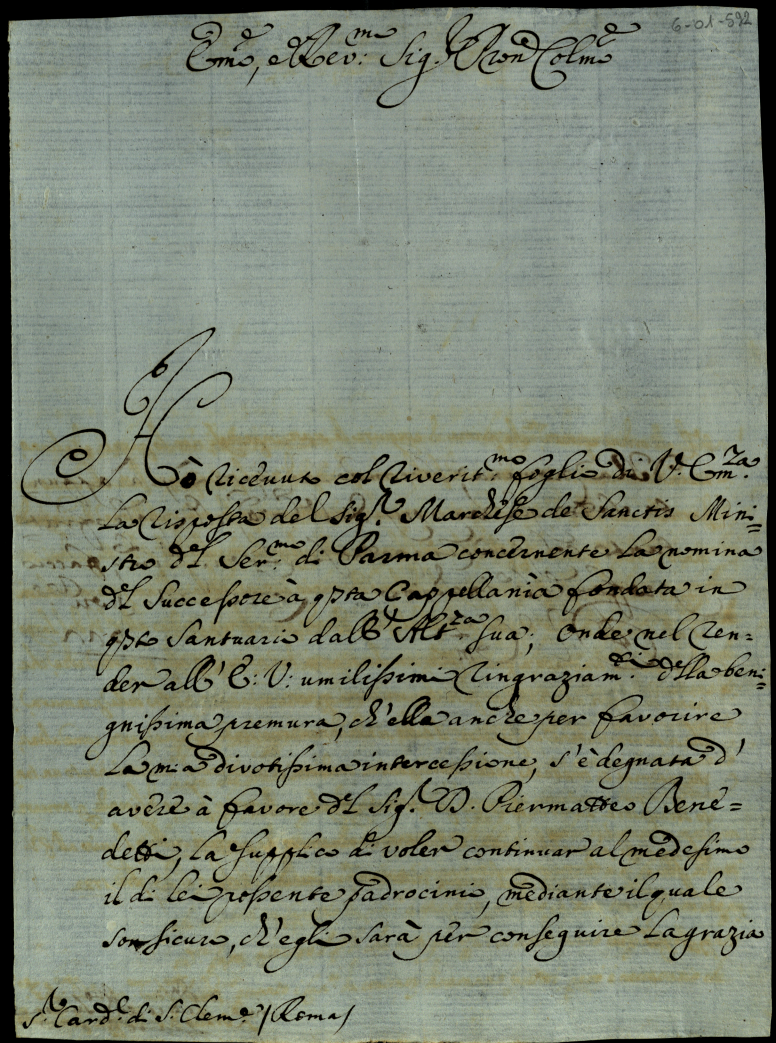 6-01-592
Em.e, e Rev.mo Sig.r Pron Colm.e
Hò ricevuto col riverit.mo foglio di V. Em.za
la risposta del Sig.r Marchese de Sanctis Mini=
stro del Ser.mo di Parma concernente la nomina
del Successore à q͂sta Cappellania fondata in
q͂sto Santuario dall' Alt.za sua; onde nel ren=
der all' E: V: umilissimi ringraziam.ti della beni=
gnissima premura, ch'ella anche per favorire
la mia divotissima intercessione, s'è degnata d'
avere à favore del Sig.r D. Piermatteo Bene=
detti, la supplico di voler continuar al medesimo
il di lei possente padrocinio, mediante il quale
son sicuro, ch'egli sarà per conseguire la grazia
S.r Card.l di S. Clem.e /Roma/